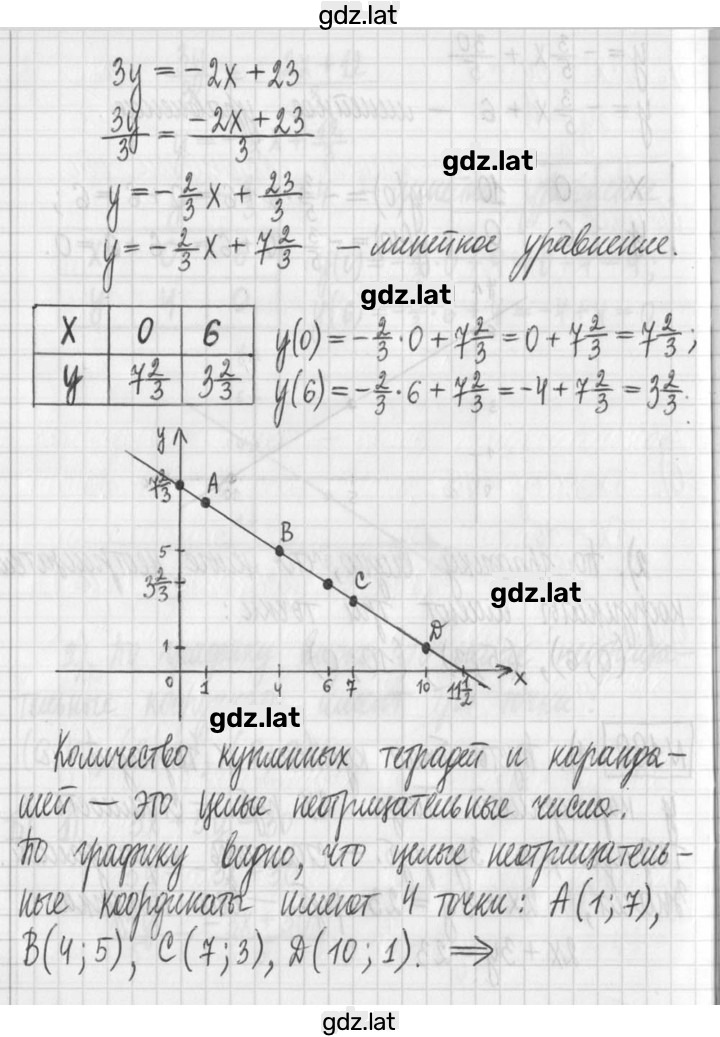 gdz.lat
3y = -2x + 23
3y/3 = (-2x + 23)/3
gdz.lat
y = -2/3 x + 23/3
y = -2/3 x + 7 2/3 — линейное уравнение.
gdz.lat
x 0 6
y 7 2/3 3 2/3
y(0) = -2/3 · 0 + 7 2/3 = 0 + 7 2/3 = 7 2/3;
y(6) = -2/3 · 6 + 7 2/3 = -4 + 7 2/3 = 3 2/3.
y
7 2/3 A
B
5
3 2/3 C
gdz.lat
D
1
0 1 4 6 7 10 11 1/2 x
gdz.lat
Количество купленных тетрадей и каранда-
шей — это целые неотрицательные числа.
По графику видно, что целые неотрицатель-
ные координаты имеют 4 точки: A(1; 7),
B(4; 5), C(7; 3), D(10; 1). ⇒
gdz.lat